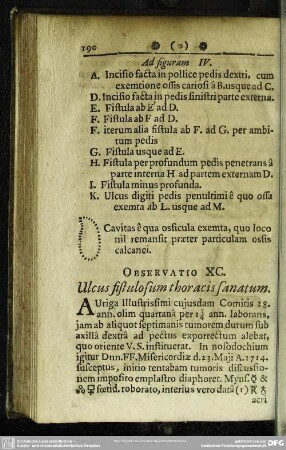 190 ❀ (o) ❀
Ad figuram IV.
A. Incisio facta in pollice pedis dextri, cum
exemtione ossis cariosi â B. usque ad C.
D. Incisio facta in pedis sinistri parte externa.
E. Fistula ab E ad D.
F. Fistula ab F ad D.
F. iterum alia fistula ab F. ad G. per ambi-
tum pedis
G. Fistula usque ad E.
H. Fistula per profundum pedis penetrans â
parte interna H ad partem externam D.
I. Fistula minus profunda.
K. Ulcus digiti pedis penultimi ê quo ossa
exemta ab L. usque ad M.
Cavitas ê qua ossicula exemta, quo loco
nil remansit præter particulam ossis
calcanei.
OBSERVATIO XC.
Ulcus fistulosum thoracis sanatum.
AUriga Illustrissimi cujusdam Comitis 28.
ann. olim quartanâ per 1¼ ann. laborans,
jam ab aliquot septimanis tumorem durum sub
axillâ dextrâ ad pectus exporrectum alebat,
quo oriente V. S. instituerat. In nosodochium
igitur Dnn. FF. Misericordiæ d. 23. Maji A. 1714.
susceptus, initio tentabam tumoris discussio-
nem imposito emplastro diaphoret. Myns. &
fœtid. roborato, interius vero datâ (1)
acri